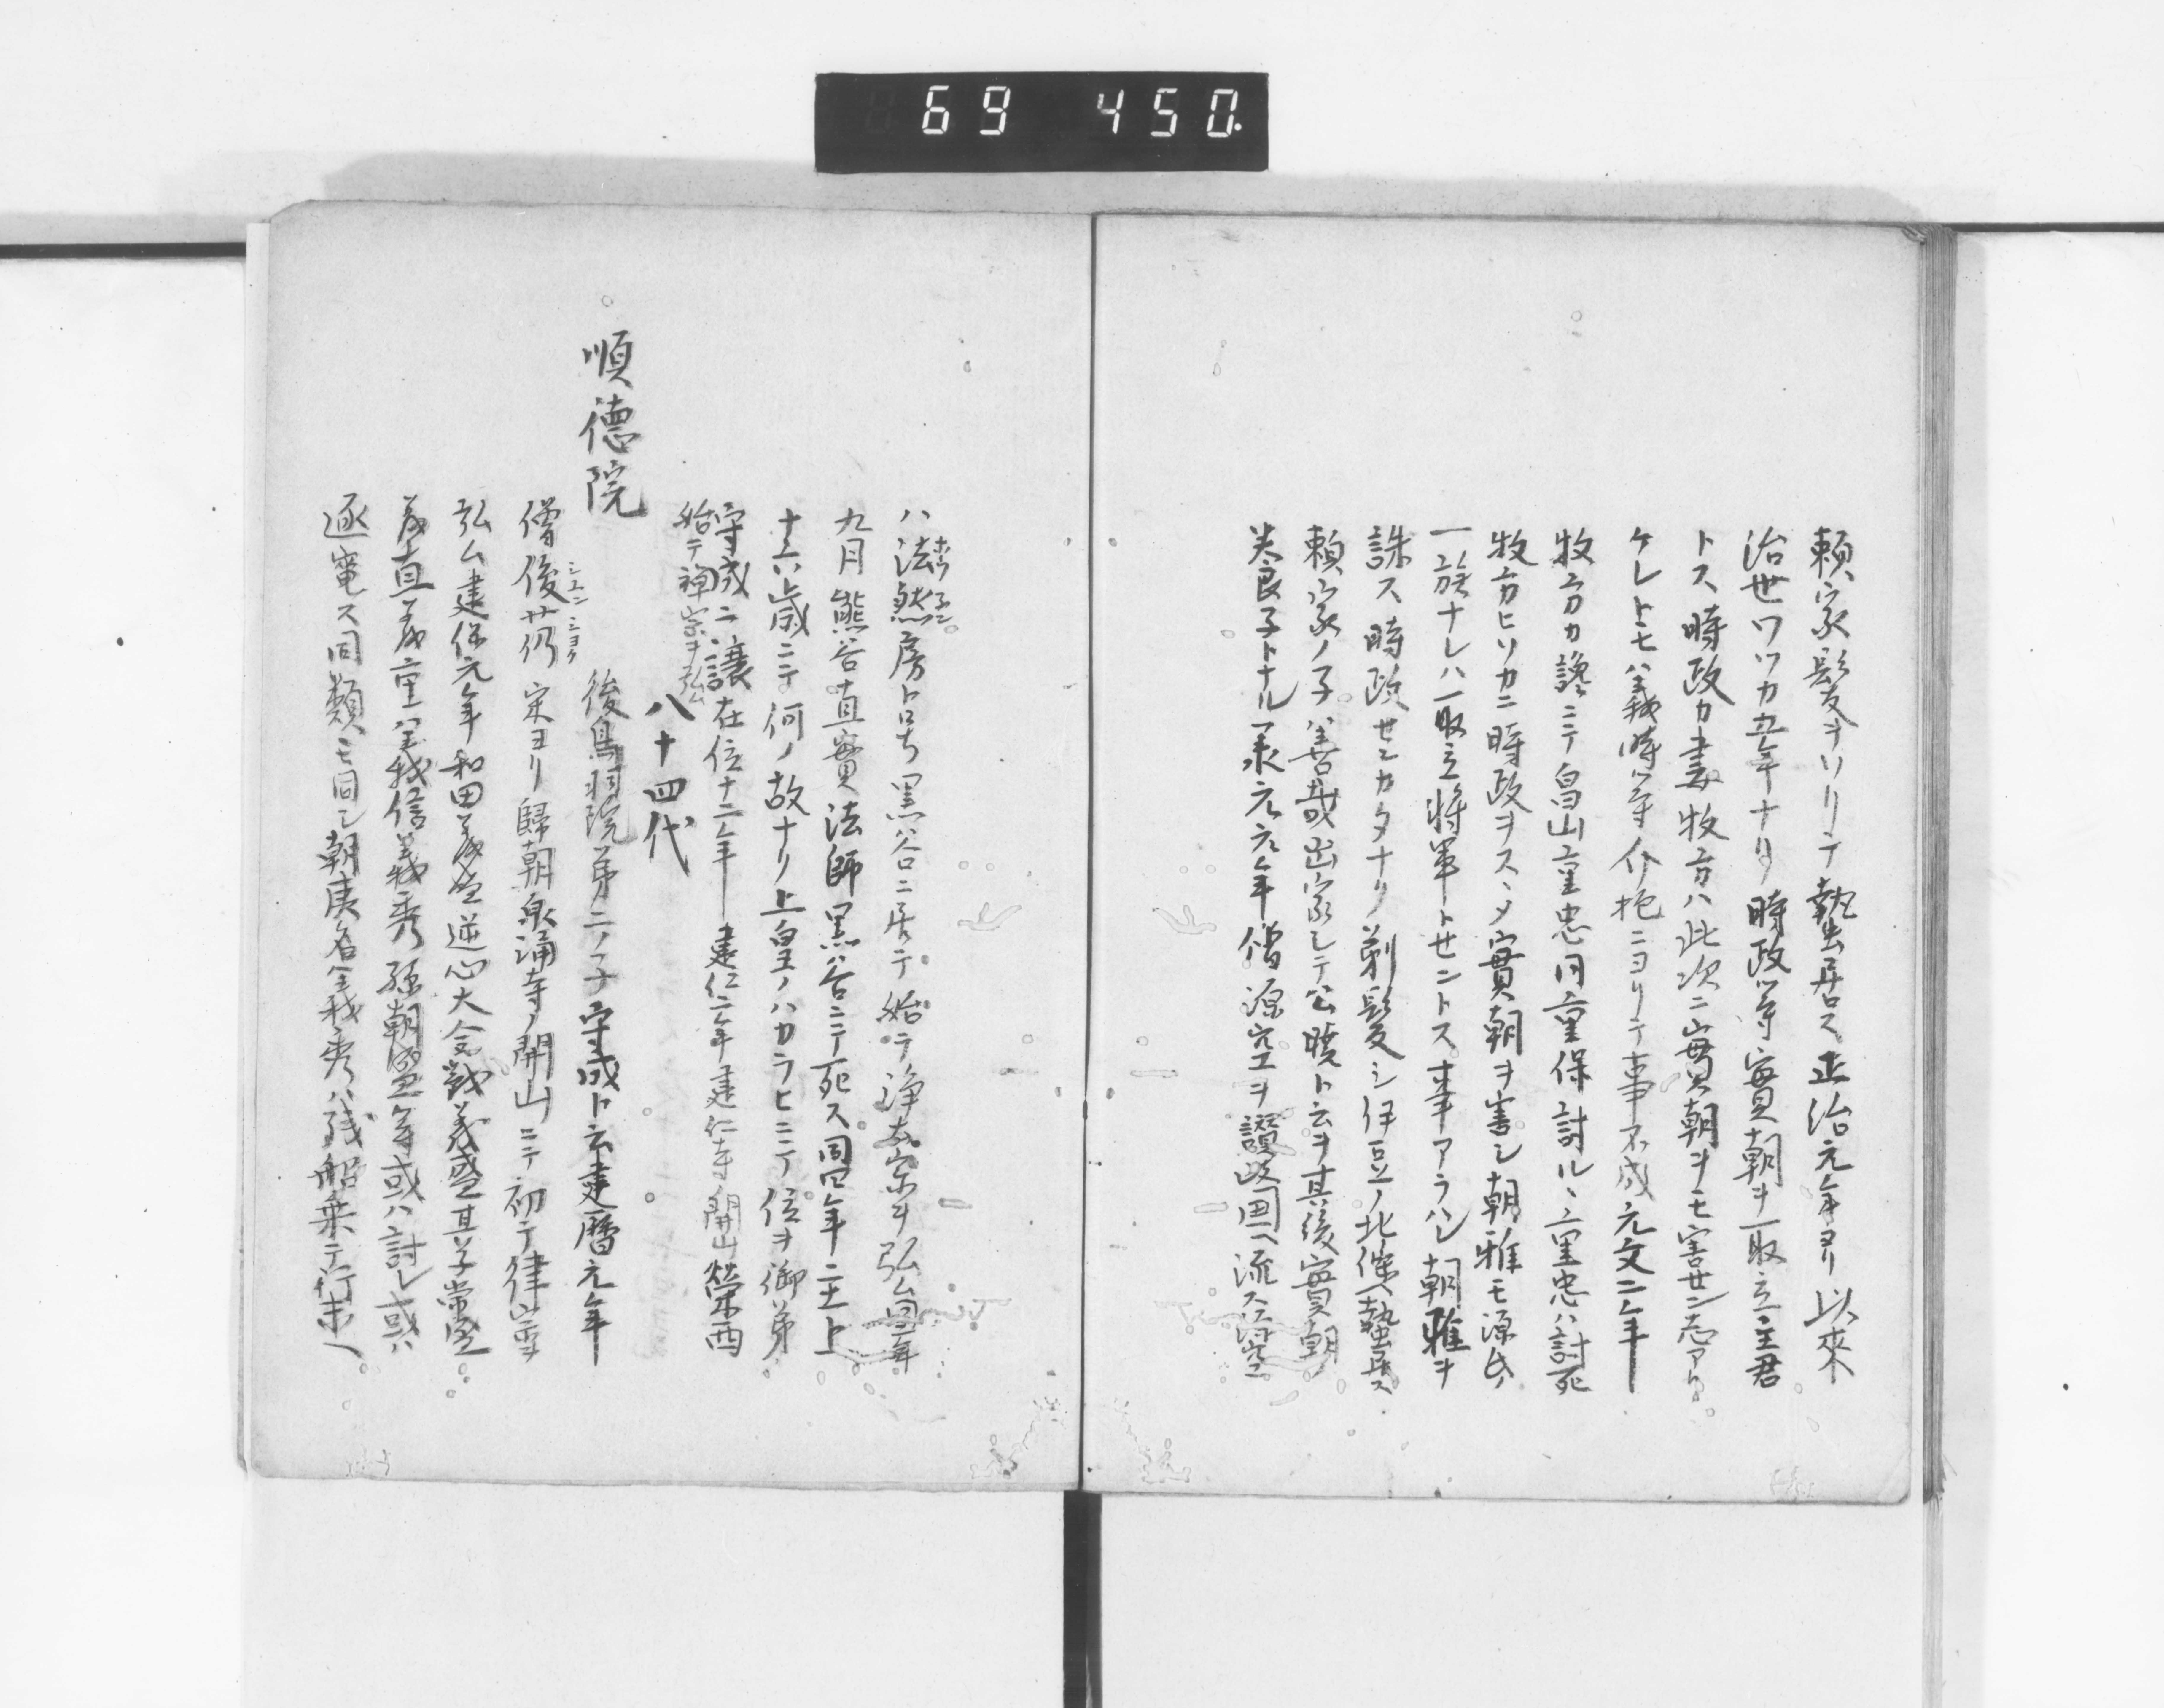 69 450
頼家髪ヲソリテ蟄居ス正治元年ヨリ以來
治世ワツカ五年ナリ時政等實朝ヲ取立主君
トス時政カ妻牧方ハ此次ニ實朝ヲモ害セン志アリ
ケレトモ義時等介抱ニヨリテ事不成元文二年
牧方カ讒ニテ畠山重忠同重保討ル重忠ハ討死
牧方ヒソカニ時政ヲスヽメ實朝ヲ害シ朝雅モ源氏ノ
一族ナレハ取立將軍トセントス事アラハレ朝雅ヲ
誅ス時政センカタナク剃髪シ伊豆ノ北條ヘ蟄居ス
頼家ノ子善哉出家シテ公暁ト云ヲ其後實朝ノ
養子トナル承元元年僧源空ヲ讃岐国ヘ流ス源空
ハ法然房ト号ス黒谷ニ居テ始テ浄土宗ヲ弘ム同二年
九月熊谷直實法師黒谷ニテ死ス同四年主上
十六歳ニテ何ノ故ナク上皇ノハカラヒニテ位ヲ御弟
守成ニ譲在位十二年 建仁二年建仁寺ノ開山榮西
始テ禅宗ヲ弘ム
八十四代
順德院
後鳥羽院第二ノ子守成ト云建暦元年
僧俊芿宋ヨリ歸朝泉涌寺ノ開山ニテ初テ律宗ヲ
シユン シヨウ
弘ム建保元年和田義盛逆心大合戦義盛其子常盛
義直義重義信義秀孫朝盛等或ハ討レ或ハ
逐電ス同類モ同シ朝夷名義秀ハ残船乗テ行末ヘ